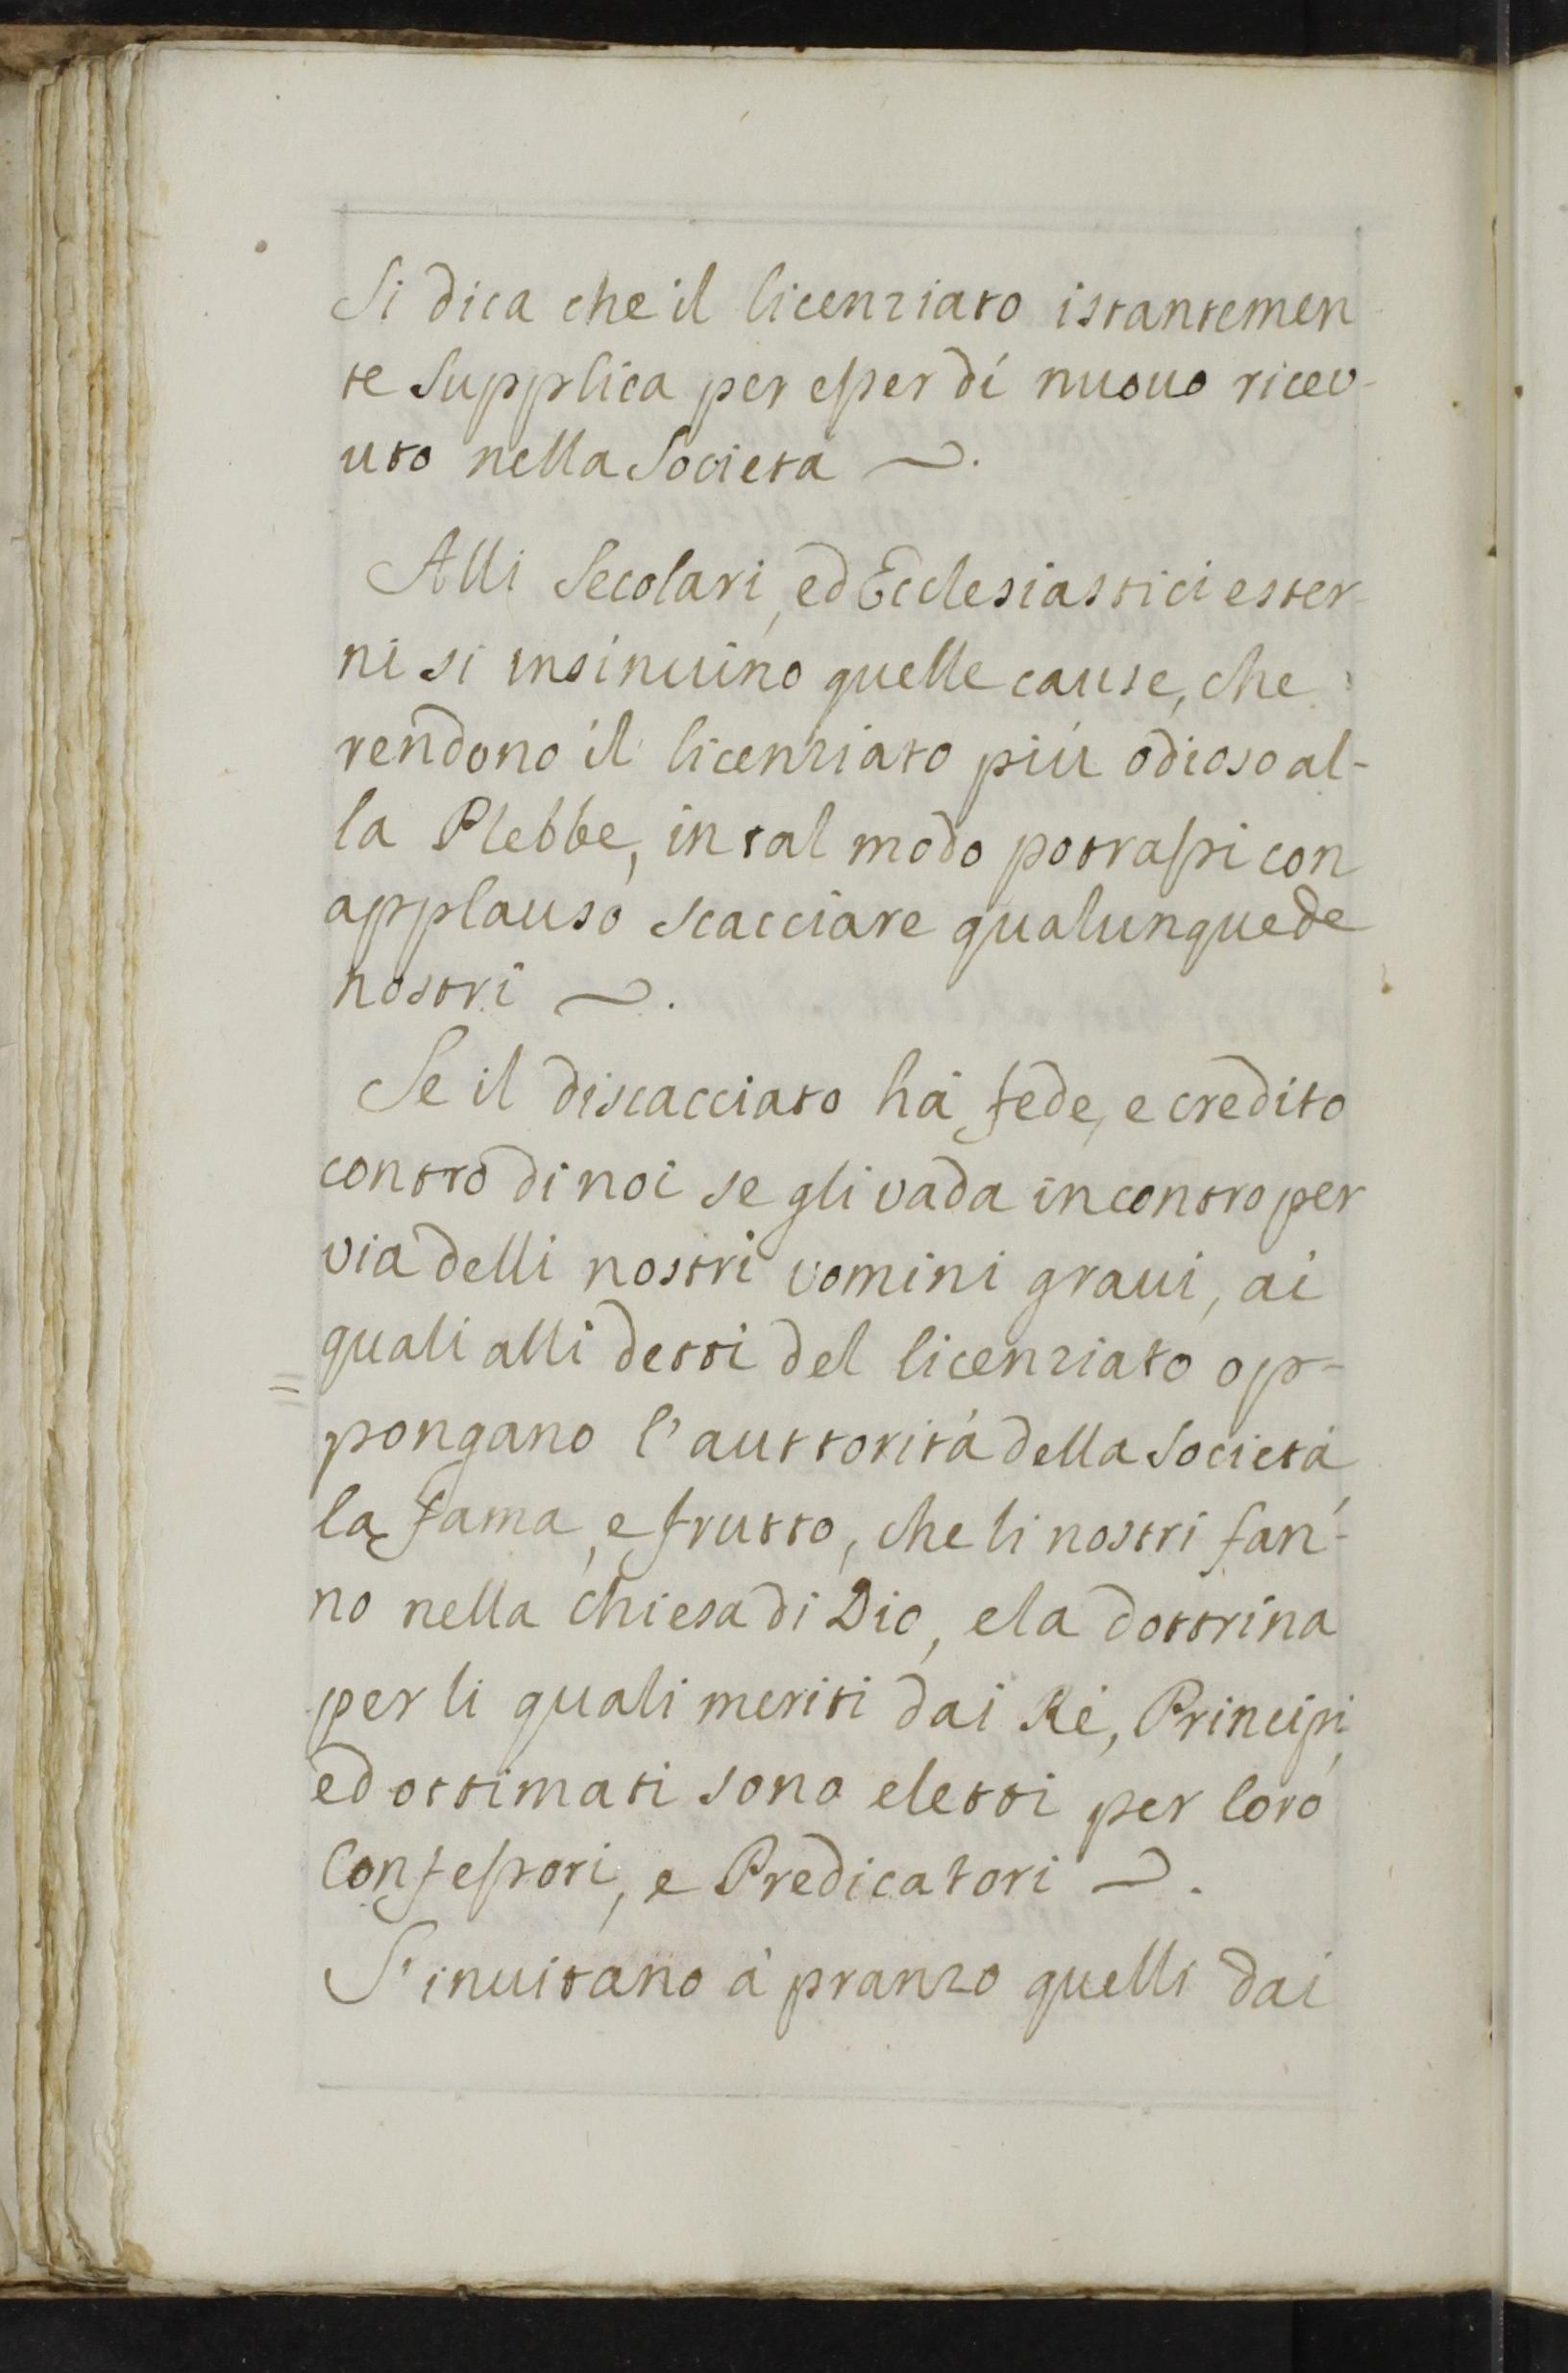 Si dica che il licenziato istantemen
te supplica per esser di nuouo ricev-
uto nella Società ~.
Alli Secolari, ed Ecclesiastici ester-
ni si insinuino quelle cause, che
rendono il licenziato più odioso al-
la Plebbe, in tal modo potrassi con
applauso scacciare qualunque de
nostri ~.
Se il discacciato hà fede, e credito
contro di noi se gli vada incontro per
via delli nostri vomini graui, ai
quali alli detti del licenziato op-
=
pongano l'auttorità della Società
la fama, e frutto, che li nostri fan-
no nella chiesa di Dio, e la dottrina
per li quali meriti dai Rè, Principi,
ed ottimati sono eletti per loro
Confessori, e Predicatori ~.
S'inuitano à pranzo quelli dai